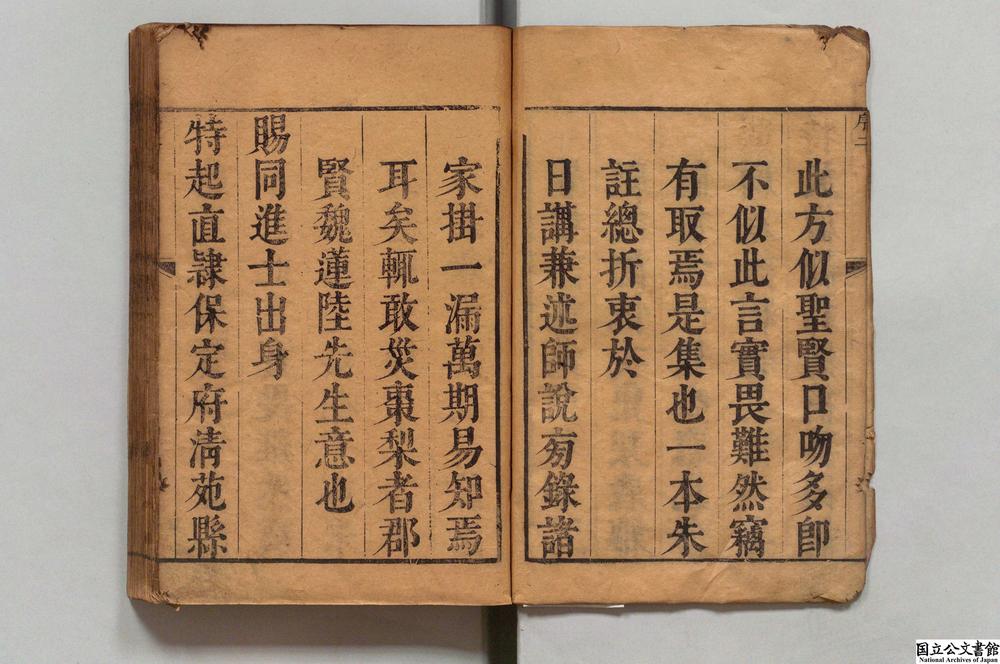 此方似聖賢口吻多卽
不似此言實畏難然竊
有取焉是集也一本朱
註總折衷於
日講兼述師說旁錄諸
家掛一漏萬期易知焉
耳矣輒敢災棗梨者郡
賢魏蓮陸先生意也
賜同進士出身
特起直隷保定府淸苑縣
国立公文書館
National Archives of Japan